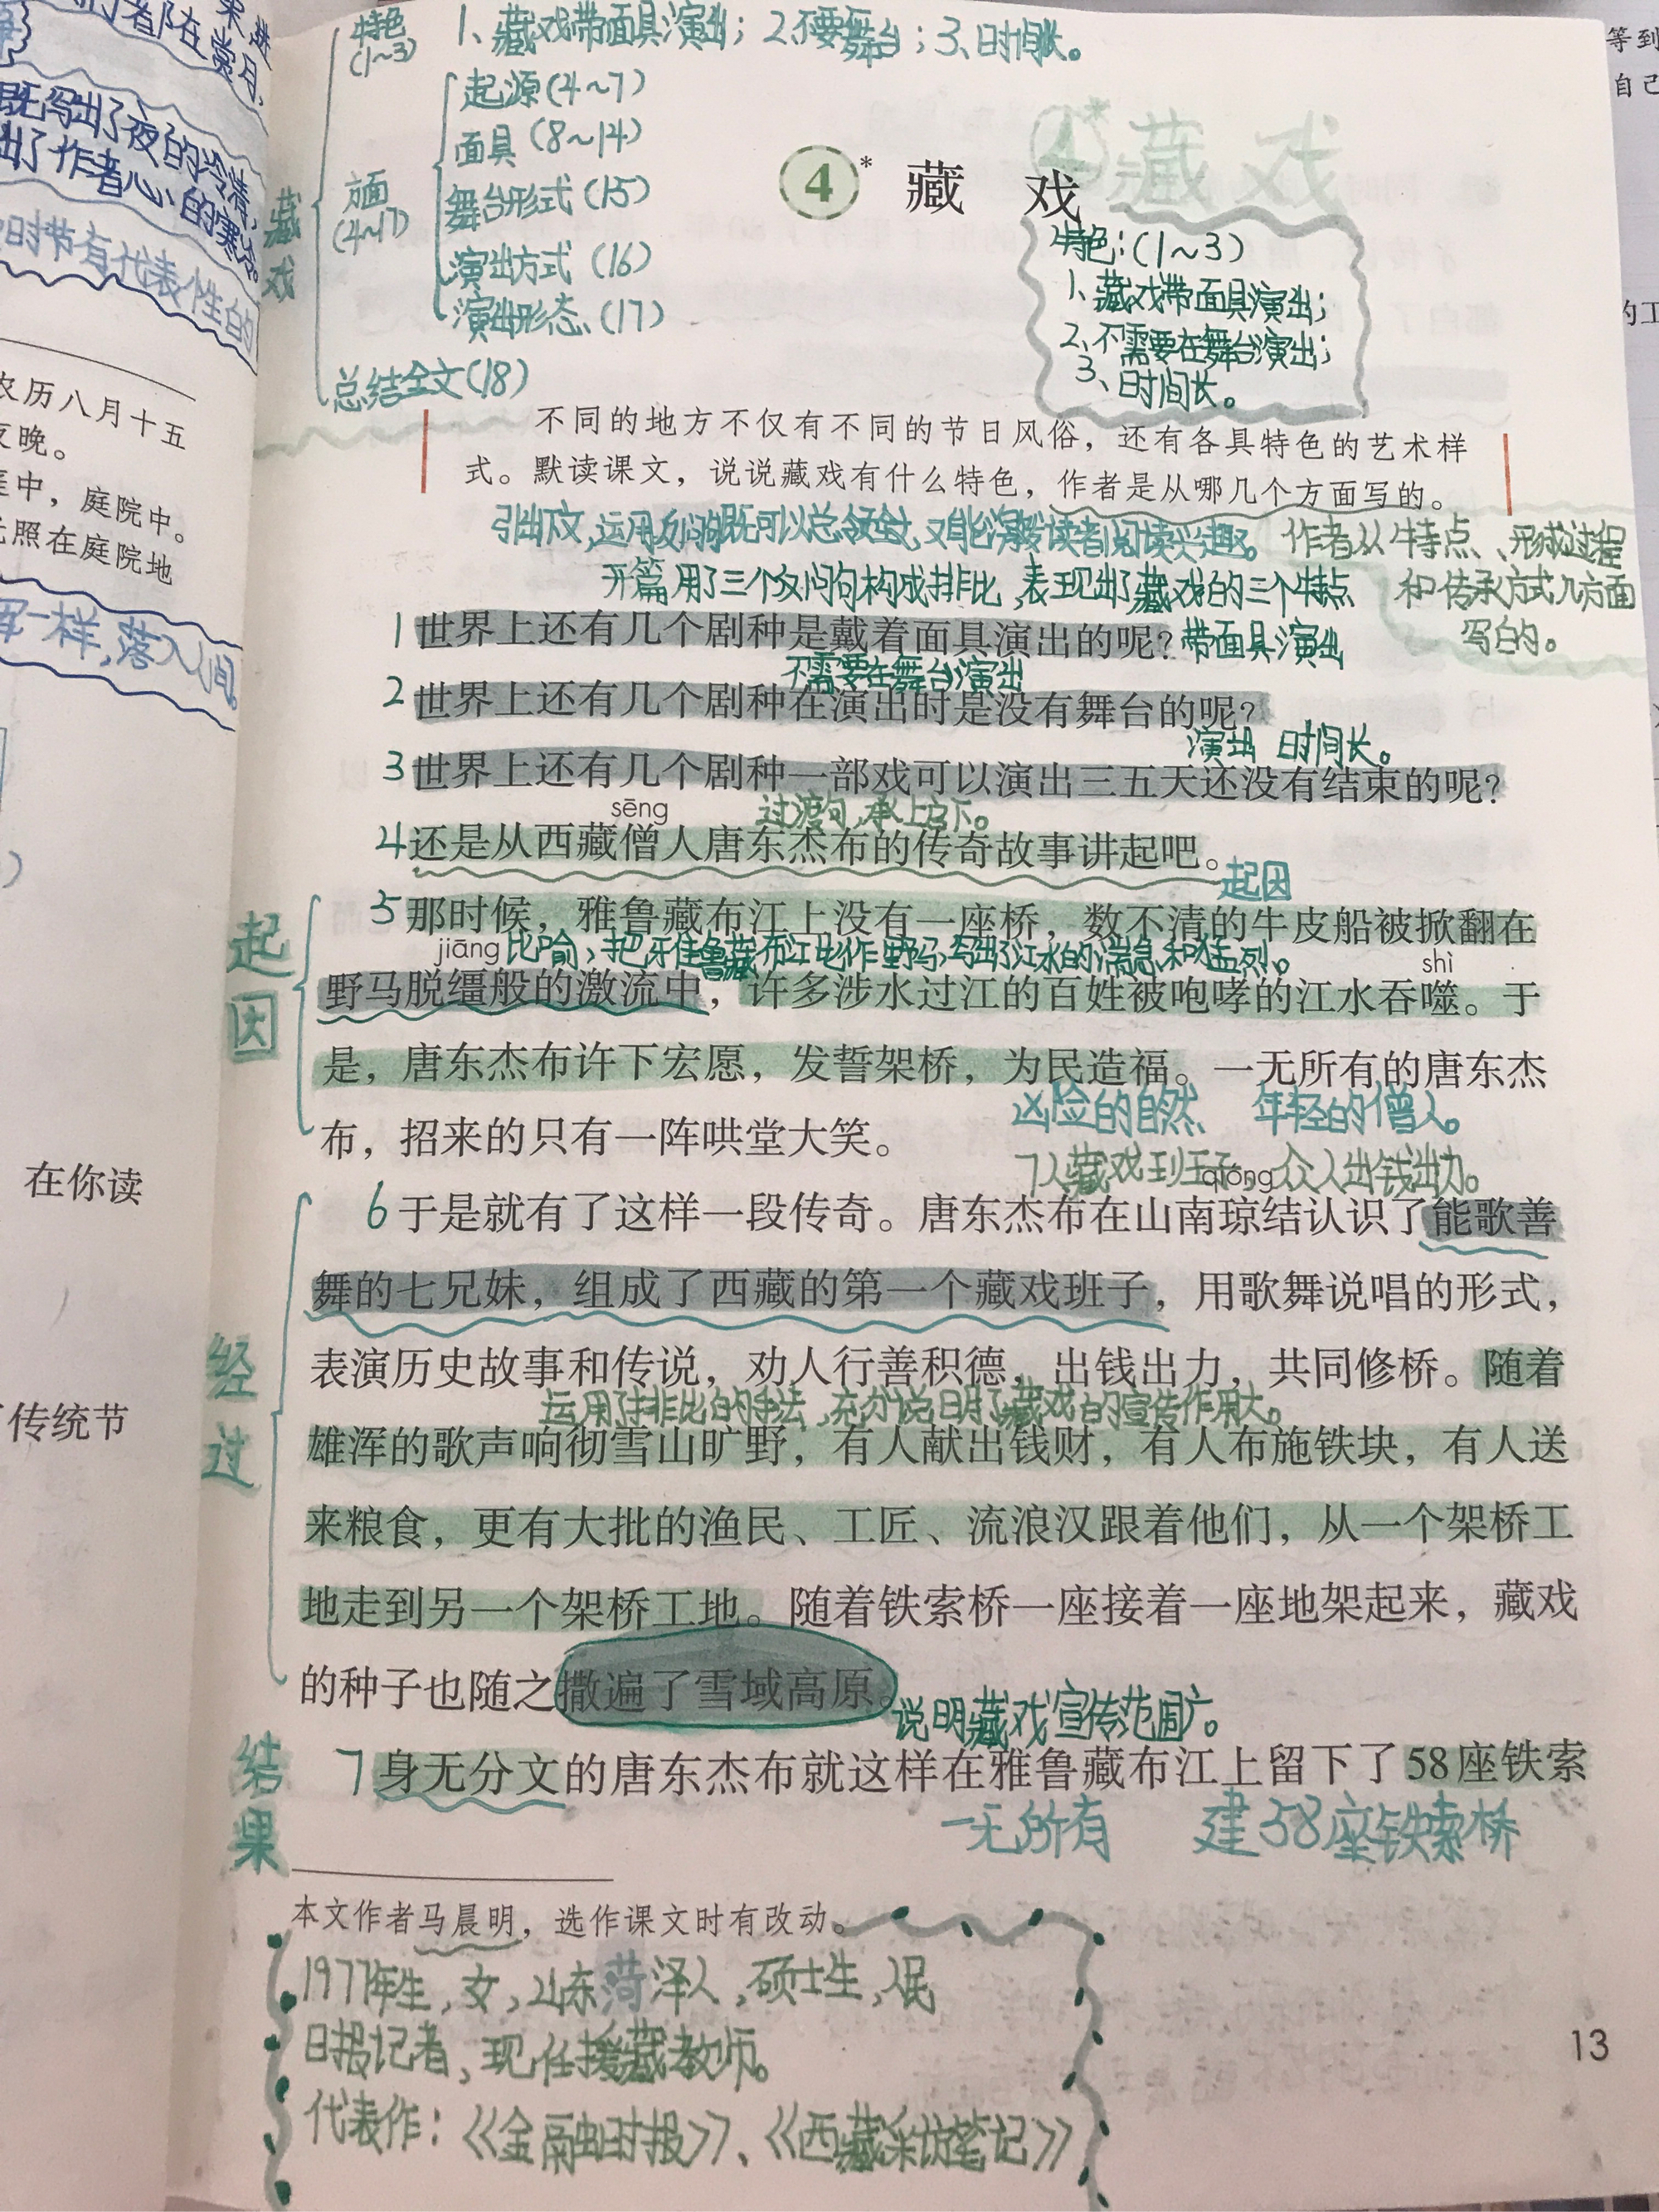 特色
(1~3)
1、藏戏带面具演出；2、不要舞台；3、时间长。
藏戏
方面
(4~17)
起源(4~7)
面具(8~14)
舞台形式(15)
演出方式(16)
演出形态(17)
总结全文(18)
4* 藏 戏
特色：(1~3)
1、藏戏带面具演出；
2、不需要在舞台演出；
3、时间长。
不同的地方不仅有不同的节日风俗，还有各具特色的艺术样
式。默读课文，说说藏戏有什么特色，作者是从哪几个方面写的。
引出下文，运用反问句既可以总领全文，又能激发读者阅读兴趣。
作者从特点、形成过程
和传承方式几方面
写的。
开篇用了三个反问句构成排比，表现出了藏戏的三个特点
1 世界上还有几个剧种是戴着面具演出的呢？ 带面具演出
不需要在舞台演出
2 世界上还有几个剧种在演出时是没有舞台的呢？
演出 时间长。
3 世界上还有几个剧种一部戏可以演出三五天还没有结束的呢？
sēng
过渡句，承上启下。
4 还是从西藏僧人唐东杰布的传奇故事讲起吧。
起因
起因
5 那时候，雅鲁藏布江上没有一座桥，数不清的牛皮船被掀翻在
jiāng 比喻，把雅鲁藏布江比作野马，写出了江水的湍急和猛烈。
shì
野马脱缰般的激流中，许多涉水过江的百姓被咆哮的江水吞噬。于
是，唐东杰布许下宏愿，发誓架桥，为民造福。一无所有的唐东杰
凶险的自然 年轻的僧人。
布，招来的只有一阵哄堂大笑。
qióng 众人出钱出力。
经过
6 于是就有了这样一段传奇。唐东杰布在山南琼结认识了能歌善
舞的七兄妹，组成了西藏的第一个藏戏班子，用歌舞说唱的形式，
表演历史故事和传说，劝人行善积德，出钱出力，共同修桥。随着
运用了排比的手法，充分说明了藏戏的宣传作用大。
雄浑的歌声响彻雪山旷野，有人献出钱财，有人布施铁块，有人送
来粮食，更有大批的渔民、工匠、流浪汉跟着他们，从一个架桥工
地走到另一个架桥工地。随着铁索桥一座接着一座地架起来，藏戏
的种子也随之撒遍了雪域高原。
说明藏戏宣传范围广。
结果
7 身无分文的唐东杰布就这样在雅鲁藏布江上留下了58座铁索
一无所有 建58座铁索桥
本文作者马晨明，选作课文时有改动。
1977年生，女，山东菏泽人，硕士生，人民
日报记者，现任援藏教师。
代表作：《金融时报》、《西藏采访笔记》
13
既写出了夜的冷清，
出了作者心的寒冷。
时节有代表性的
农历八月十五
夜晚。
庭中，庭院中。
光照在庭院地
一样，落入人间。
在你读
传统节
等到
自己
的工